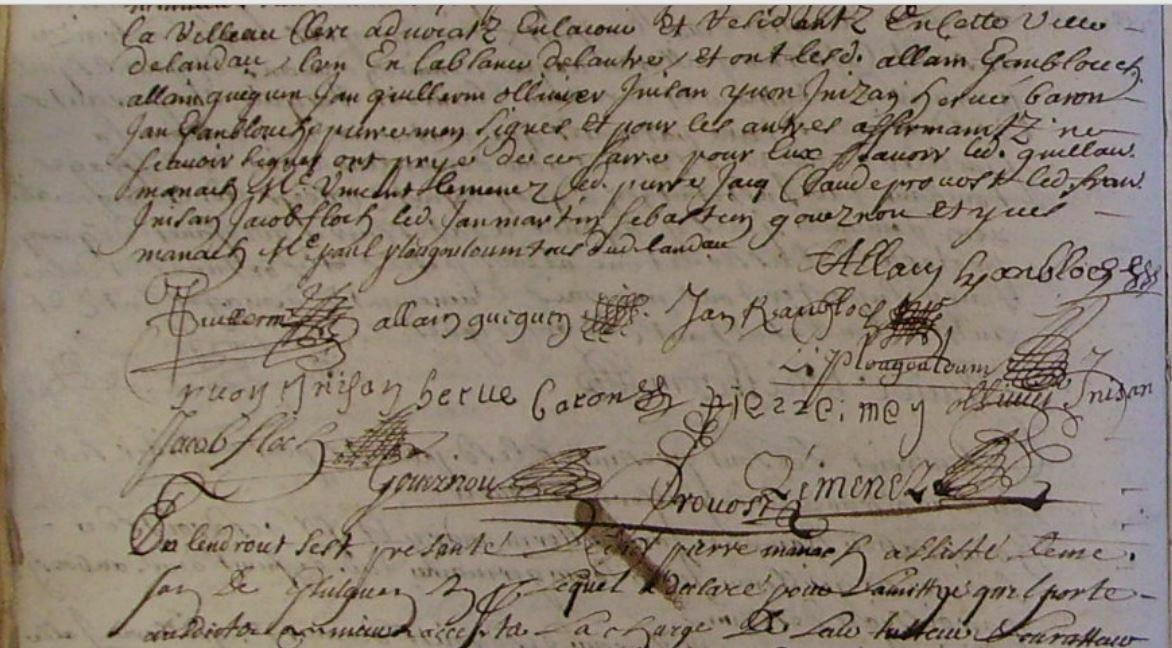 la Villeau Clerc advocatz En la cour Et residantz En cette Ville
de landau l'un En l'absance de l'autre, Et ont lesd. allain Kanbloch
allain gueguen Jan guillerm ollivier Inisan yvon Inizan hervé baron
Jan Kanbloch pierre mey signes Et pour les autres affirmantz ne
scavoir signer ont pryé de ce faire pour Eux scavoir led. guillau.
manach Me. Vincent lemenez led. pierre Jacq Claude provost led. fran.
Inisan Jacob floch led. Jan martin sebastien goueznou Et yves
manach Me. paul plougouloum tous dud. landau
Allain Kanbloch
Guillerm allain gueguen Jan Kanbloch
Plougouloum
yvon Inisan herve baron pierre mey ollivier Inisan
Jacob floch
goueznou Provost Lemenez
En l'endroit s'est presanté pierre manach assisté
de lequel a declaré pour l'amittyé qu'il porte
accepté la charge de